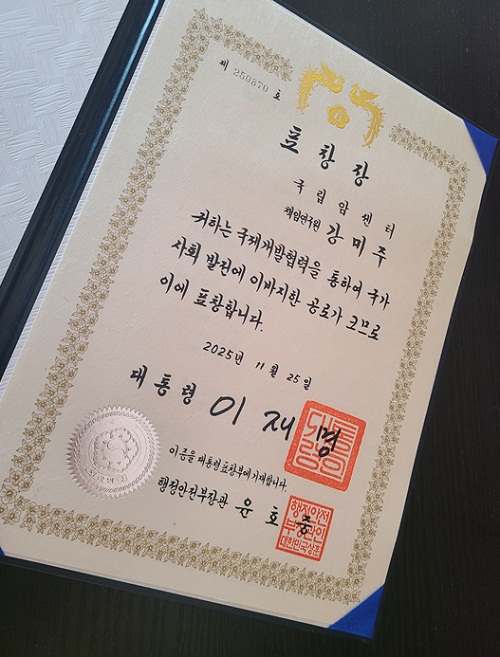 제 250870 호
표 창 장
국 립 암 센 터
책임연구원 강 미 주
귀하는 국제개발협력을 통하여 국가
사회 발전에 이바지한 공로가 크므로
이에 표창합니다.
2025년 11월 25일
대 통 령 이 재 명
이 증을 대통령 표창부에 기재합니다.
행정안전부장관 윤 호 중
행정안전
부장관인
대한민국상훈